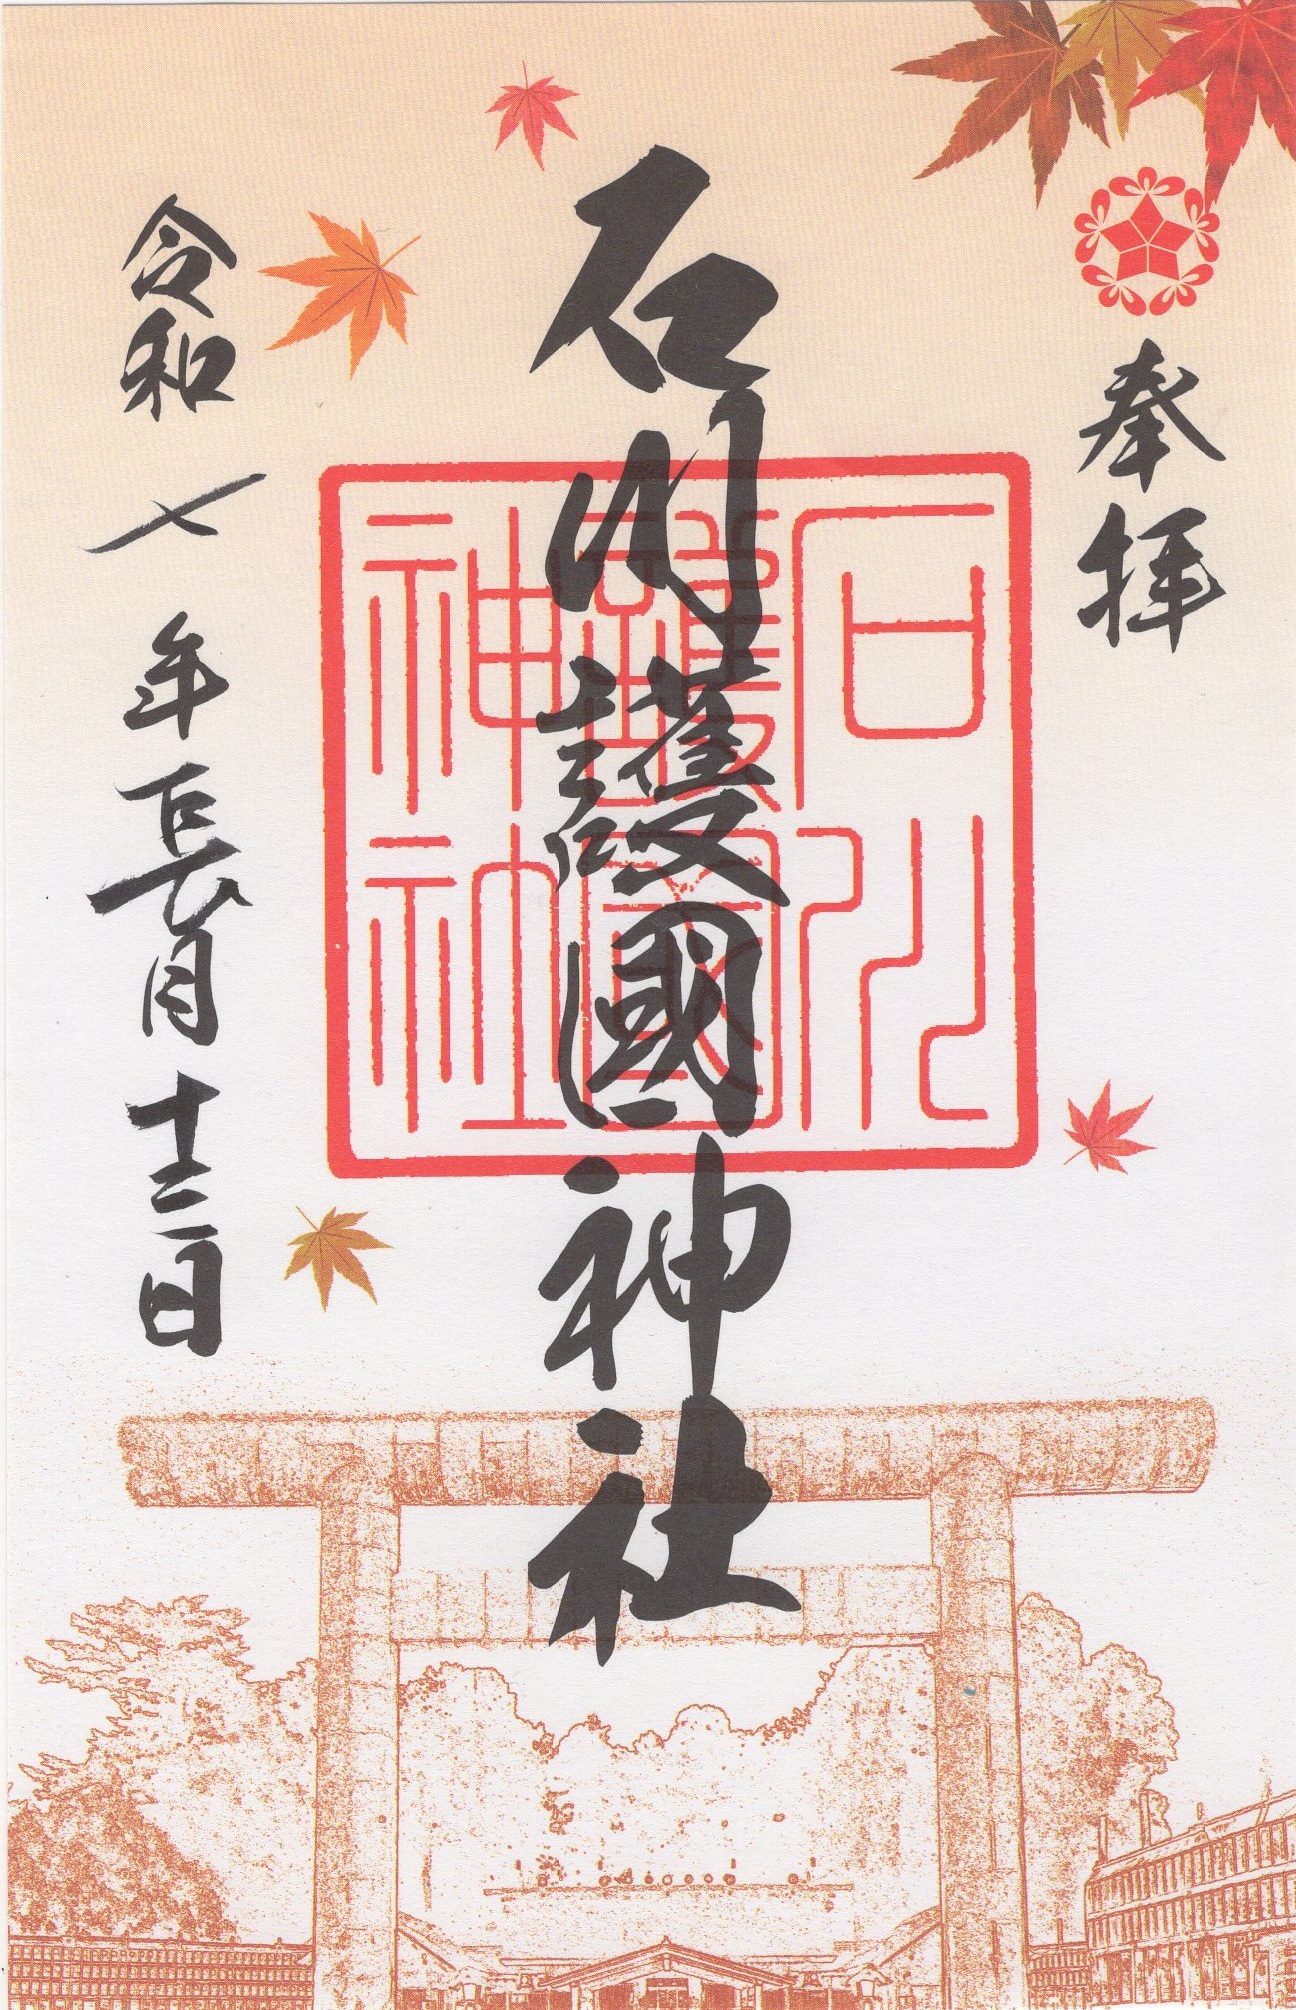 奉拝
石川護國神社
石川
護國
神社
令和七年長月十三日